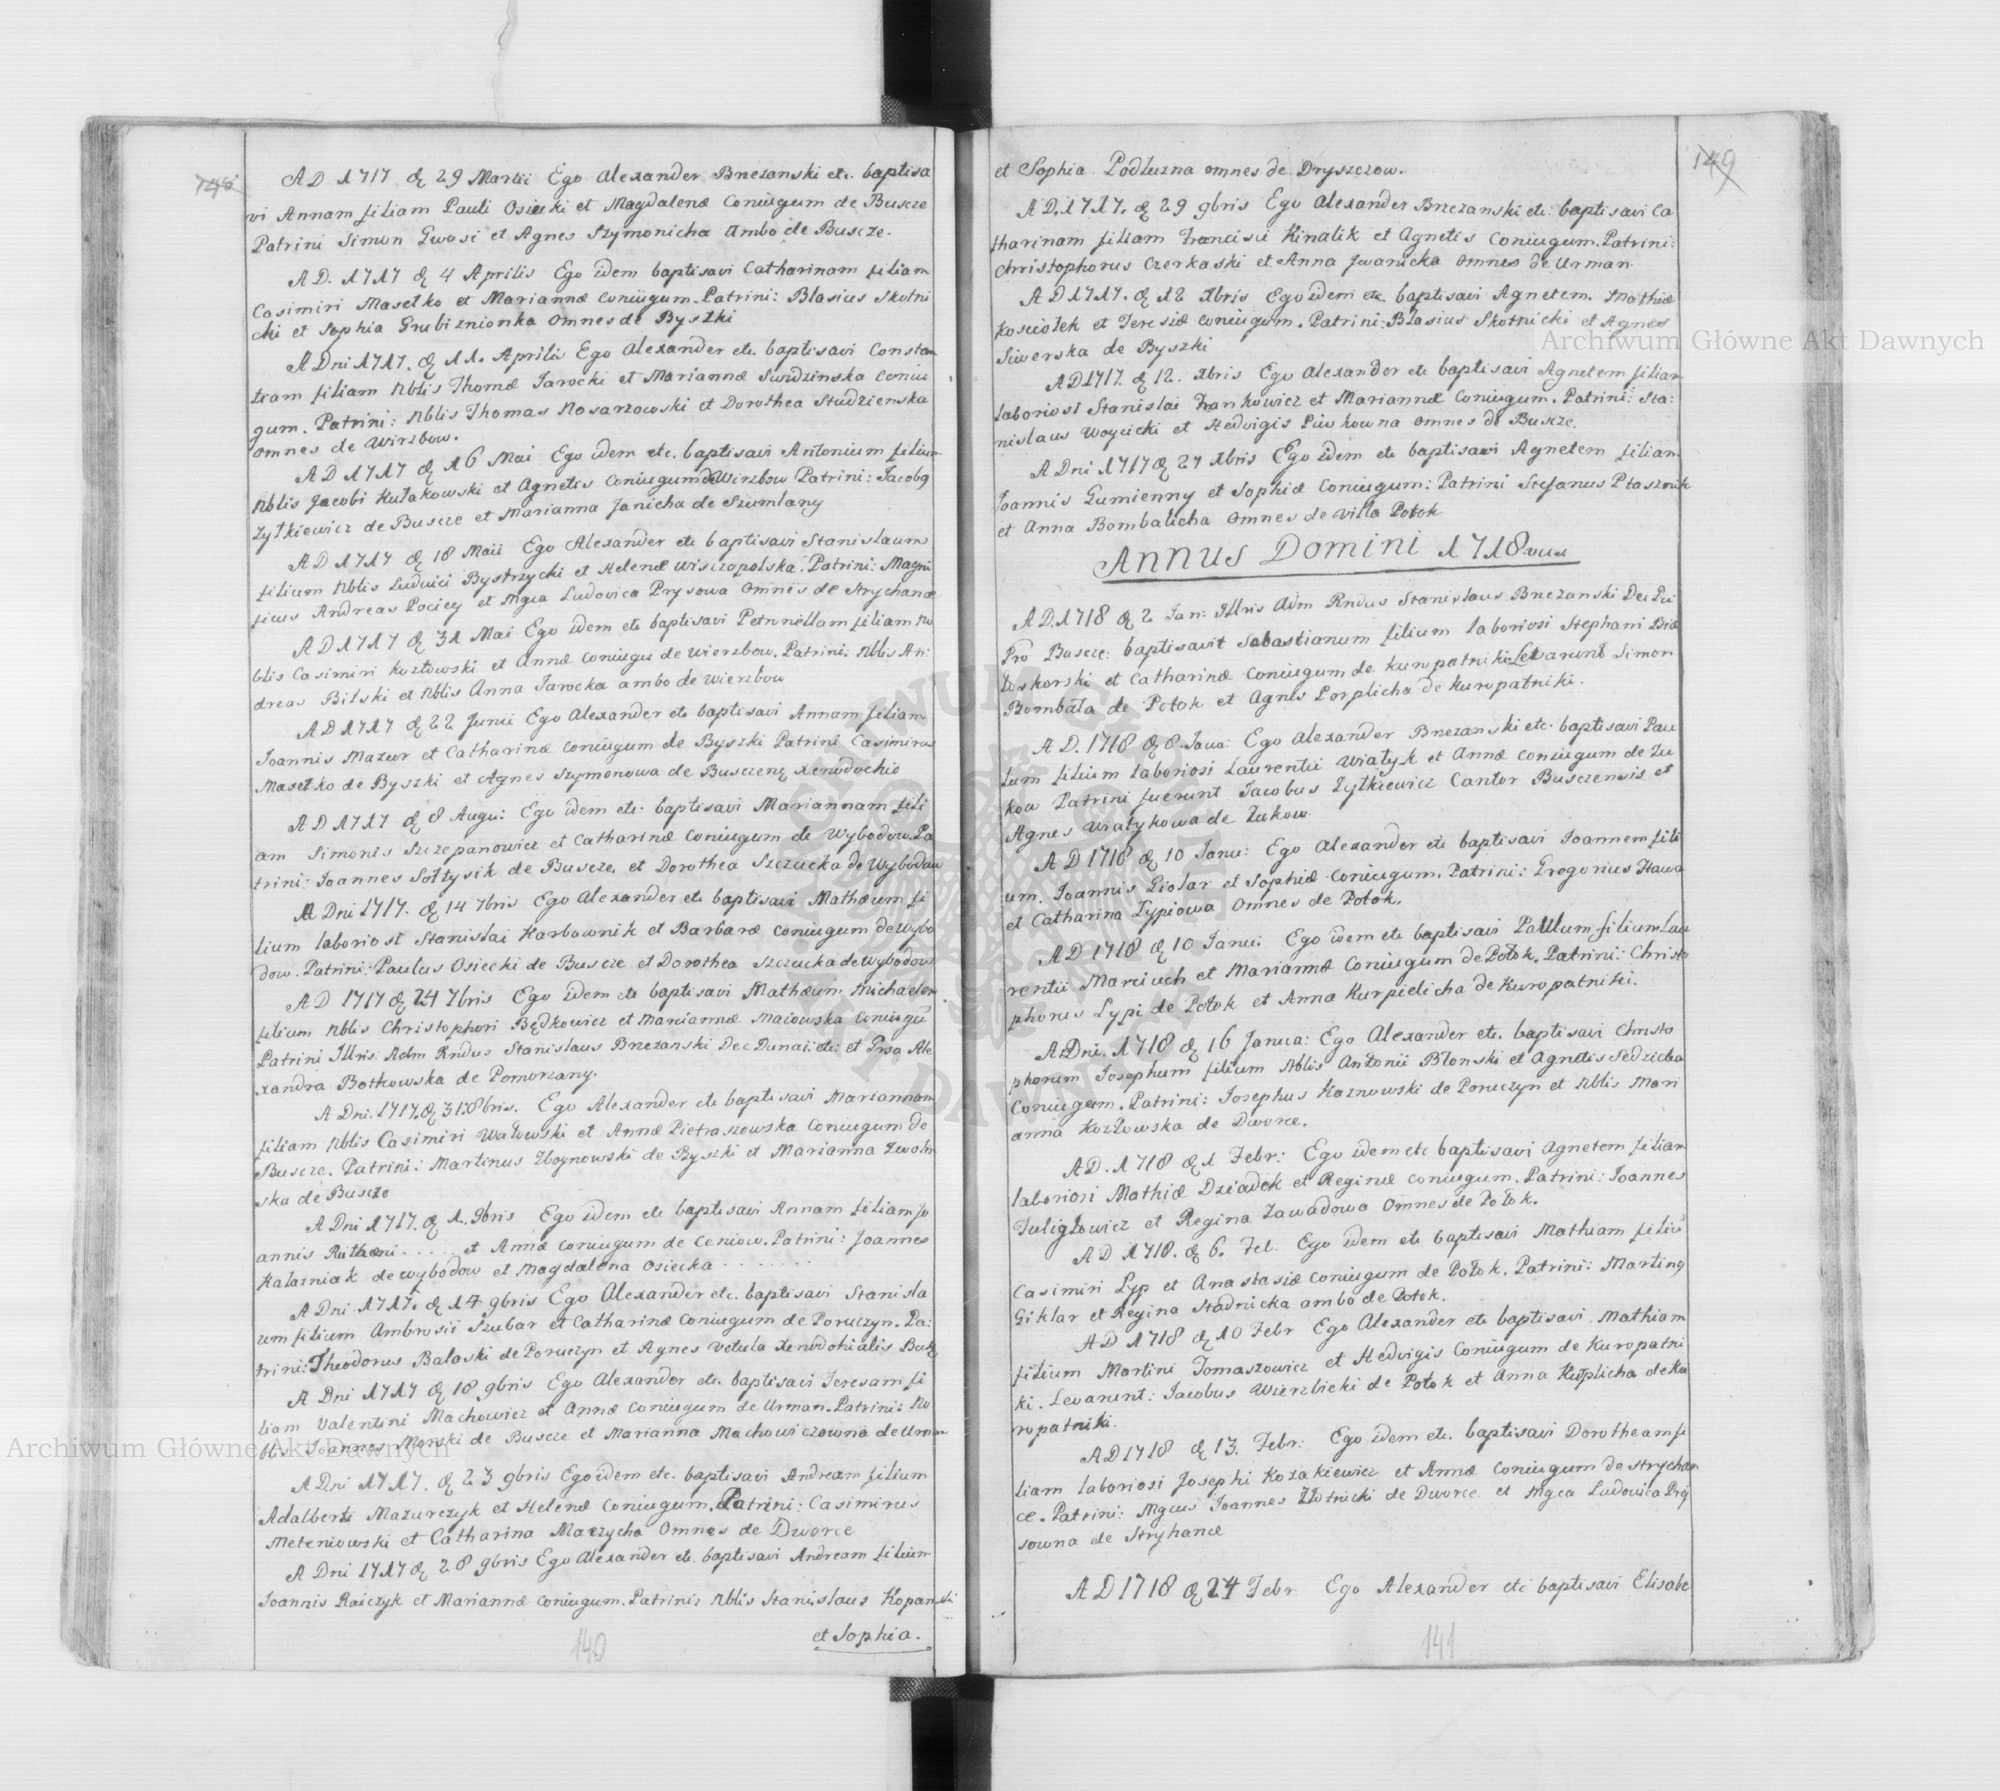 148
A D 1717 d 29 Martii Ego Alexander Brzezanski etc. baptisa
vi Annam filiam Pauli Osiecki et Magdalenæ Coniugum de Buscze
Patrini Simon Gwosi et Agnes Szymonicha Ambo de Buscze.
A D. 1717 d 4 Aprilis Ego idem baptisavi Catharinam filiam
Casimiri Masełko et Mariannæ Coniugum. Patrini: Blasius Skotni
cki et Sophia Grubiznionka omnes de Byszki
A Dni 1717. d 11. Aprilis Ego Alexander etc. baptisavi Constan
tiam filiam Nblis Thomæ Jarocki et Mariannæ Swidzinska Coniu
gum. Patrini: Nblis Thomas Nosarzowski et Dorothea Studzienska
omnes de Wirzbow.
A D 1717 d 16 Mai Ego idem etc. baptisavi Antonium filium
Nblis Jacobi Kułakowski et Agnetis Coniugum de Wirzbow Patrini: Jacobq
Zytkiewicz de Buscze et Marianna Janicha de Szumlany
A D 1717 d 18 Maii Ego Alexander etc baptisavi Stanislaum
filium Nblis Ludvici Bystrzycki et Helenæ Wiszopolska. Patrini: Magni
ficus Andreas Pociey et Mgca Ludovica Prysowa Omnes de Strychancæ
A D 1717 d 31 Mai Ego idem etc baptisavi Petronellam filiam No
blis Casimiri Kozłowski et Annæ Coniugu de Wierzbow. Patrini: Nblis An:
dreas Bilski et Nblis Anna Jarocka ambo de Wierzbow
A D 1717 d 22 Junii Ego Alexander etc baptisavi Annam filiam
Joannis Mazur et Catharinæ Coniugum de Byszki Patrini Casimirus
Masełko de Byszki et Agnes Szymonowa de Busczenq xenodochio
A D 1717 d 8 Augu: Ego idem etc: baptisavi Mariannam fili
am Simonis Szczepanowicz et Catharinæ Coniugum de Wybodow. Pa
trini: Joannes Sołtysik de Buscze, et Dorothea Szczucka de Wybodow
A Dni 1717. d 14 7bris Ego Alexander etc baptisavi Mathæum fi
lium laboriosi Stanislai Karbownik et Barbaræ Coniugum de Wybo
dow. Patrini: Paulus Osiecki de Buscze et Dorothea Szczucka de Wybodow
A D 1717 d 24 7bris Ego idem etc baptisavi Mathæum Michaelem
filium Nblis Christophori Będkowicz et Mariannæ Maiowska Coniugū
Patrini Illris: Adm Rndus Stanislaus Brzezanski Dec Dunai: etc: et Grsa Ale
xandra Botkowska de Pomorzany.
A Dni: 1717. d 31. 8bris. Ego Alexander etc baptisavi Mariannam
filiam Nblis Casimiri Wałowski et Annæ Pietraszowska Coniugum de
Buscze. Patrini: Martinus Zboynowski de Byszki et Marianna Zwolin
ska de Buscze
A Dni 1717. d 1. 9bris Ego idem etc baptisavi Annam filiam Jo
annis Rutheni ..... et Annæ Coniugum de Ceniow. Patrini: Joannes
Kalazniak de Wybodow et Magdalena Osiecka .......
A Dni 1717. d 14 9bris Ego Alexander etc. baptisavi Stanisla
um filium Ambrosii Szubar et Catharinæ Coniugum de Poruczyn. Pa:
trini: Theodorus Balaski de Poruczyn et Agnes Vetula Xenodohialis Busc
A Dni 1717 d 18 9bris Ego Alexander etc. baptisavi Teresam fi
liam Valentini Machowicz et Annæ Coniugum de Urman. Patrini: No
blis Joannes Morski de Buscze et Marianna Machowiczowna de Urman
A Dni 1717. d 23 9bris Ego idem etc. baptisavi Andream filium
Adalberti Mazurczyk et Helenæ Coniugum. Patrini: Casimirus
Meteniowski et Catharina Marzycha Omnes de Dworce
A Dni 1717 d 28 9bris Ego Alexander etc. baptisavi Andream filium
Joannis Raiczyk et Mariannæ Coniugum. Patrini: Nblis Stanislaus Kopanski
et Sophia.
140
149
et Sophia Podluzna omnes de Dryszczow.
A D. 1717. d 29 9bris Ego Alexander Brzezanski etc: baptisavi Ca
tharinam filiam Francisci Kinalik et Agnetis Coniugum. Patrini:
Christophorus Czerkaski et Anna Jwanicka Omnes de Urman
A D 1717. d 12 Xbris Ego idem etc. baptisavi Agnetem. Mathiæ
Kosciołek et Teresiæ Coniugum. Patrini: Blasius Skotnicki et Agnes
Siwerska de Byszki
A D 1717. d 12. Xbris Ego Alexander etc baptisavi Agnetem filiam
laboriosi Stanislai Frankowicz et Mariannæ Coniugum. Patrini: Sta:
nislaus Woycicki et Hedvigis Piwkowna omnes de Buscze.
A Dni 1717 d 27 Xbris Ego idem etc baptisavi Agnetem filiam
Joannis Gumienny et Sophiæ Coniugum: Patrini Stefanus Ptasznik
et Anna Bombalicha omnes de villa Potok
Annus Domini 1718vus
A D. 1718 d 2 Jan: Illris Adm Rndus Stanislaus Brzezanski Dec Du:
Pro Buscze: baptisavit Sebastianum filium laboriosi Stephani Bia
łoskorski et Catharinæ Coniugum de Kuropatniki Levarunt Simon
Bombała de Potok et Agnes Porplicha de Kuropatniki.
A D. 1718 d 8. Janu: Ego Alexander Brzezanski etc. baptisavi Pau
lum filium laboriosi Laurentii Wiatyk et Annæ Coniugum de Zu
kow Patrini fuerunt Jacobus Zytkiewicz Cantor Busczensis et
Agnes Wiatykowa de Zukow
A D 1718 d 10 Janu: Ego Alexander etc baptisavi Joannem fili
um. Joannis Giolar et Sophiæ Coniugum. Patrini: Gregorius Hawa
et Catharina Lypiowa Omnes de Potok.
A D 1718 d 10 Janu: Ego idem etc baptisavi Paulum filium Lau
rentii Marciuch et Mariannæ Coniugum de Potok. Patrini: Christo
phorus Lypi de Potok et Anna Kurpielicha de Kuropatniki.
A Dni. 1718 d 16 Janua: Ego Alexander etc. baptisavi Christo
phorum Josephum filium Nblis Antonii Blonski et Agnetis Sedzicka
Coniugum. Patrini: Josephus Kaznowski de Poruczyn et Nblis Mari
anna Kozłowska de Dworce.
A D. 1718 d 1 Febr: Ego idem etc baptisavi Agnetem filiam
laboriosi Mathiæ Dziadek et Reginæ Coniugum. Patrini: Joannes
Fuligłowicz et Regina Zawadowa Omnes de Potok.
A D 1718. d 6. Feb. Ego idem etc baptisavi Mathiam filiū
Casimiri Lyp et Anastasiæ Coniugum de Potok. Patrini: Martinq
Giklar et Regina Stadnicka ambo de Potok.
A D 1718 d 10 Febr Ego Alexander etc baptisavi Mathiam
filium Martini Tomaszowicz et Hedvigis Coniugum de Kuropatni
ki. Levarunt: Jacobus Wierzbicki de Potok et Anna Kurplicha de Ku
ropatniki.
A D 1718 d 13. Febr: Ego idem etc. baptisavi Dorotheam fi
liam laboriosi Josephi Kozakiewicz et Annæ Coniugum de Strychan
ce. Patrini: Mgcus Joannes Złotnicki de Dworce et Mgca Ludovica Pry
sowna de Stryhance
A D 1718 d 24 Febr: Ego Alexander etc baptisavi Elisabe
141
Archiwum Główne Akt Dawnych
Archiwum Główne Akt Dawnych